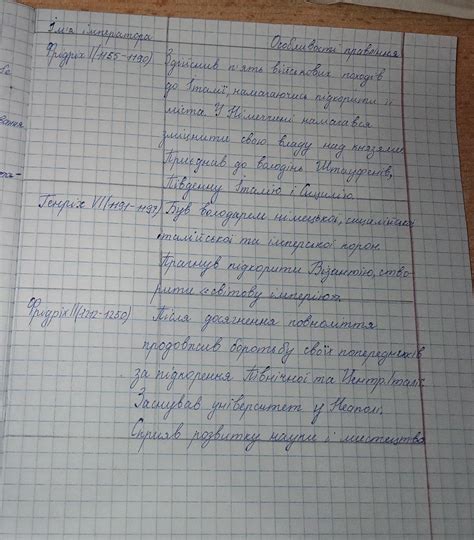 Ім'я імператора Особливості правління
Фрідріх I (1155-1190) Здійснив п'ять військових походів
до Італії, намагаючись підкорити її
міста. У Німеччині намагався
зміцнити свою владу над князями.
Приєднав до володінь Штауфенів,
Південну Італію і Сицилію.
Генріх VI (1191-1197) Був володарем німецької, сицилійської
італійської та імперської корон
Прагнув підкорити Візантію, ство-
рити «світову імперію».
Фрідріх II (1212-1250) Після досягнення повноліття
продовжив боротьбу своїх попередників
за підкорення Північної та Центр. Італії
Заснував університет у Неаполі.
Сприяв розвитку науки і мистецтва